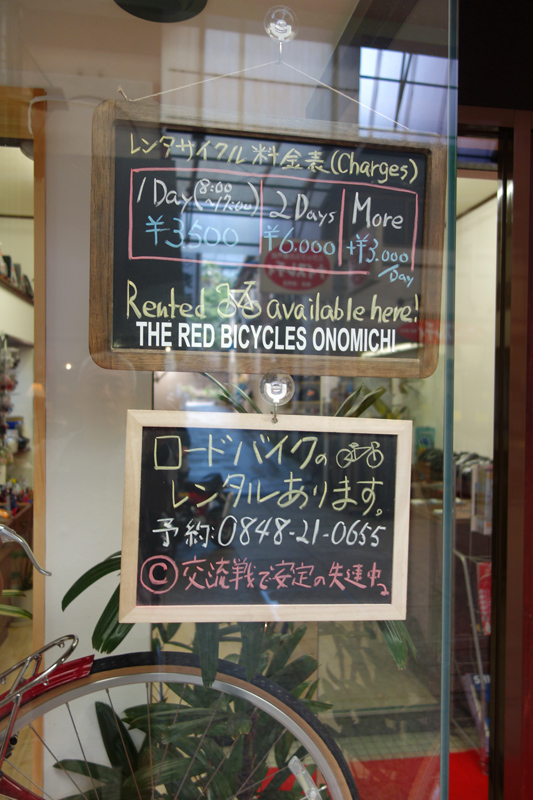 レンタサイクル料金表(Charges)
1Day(8:00~19:00) 2Days More
¥3500 ¥6,000 +¥3,000/Day
Rented available here!
THE RED BICYCLES ONOMICHI
ロードバイクの
レンタルあります。
予約:0848-21-0655
Ⓒ交流戦で安定の失速中